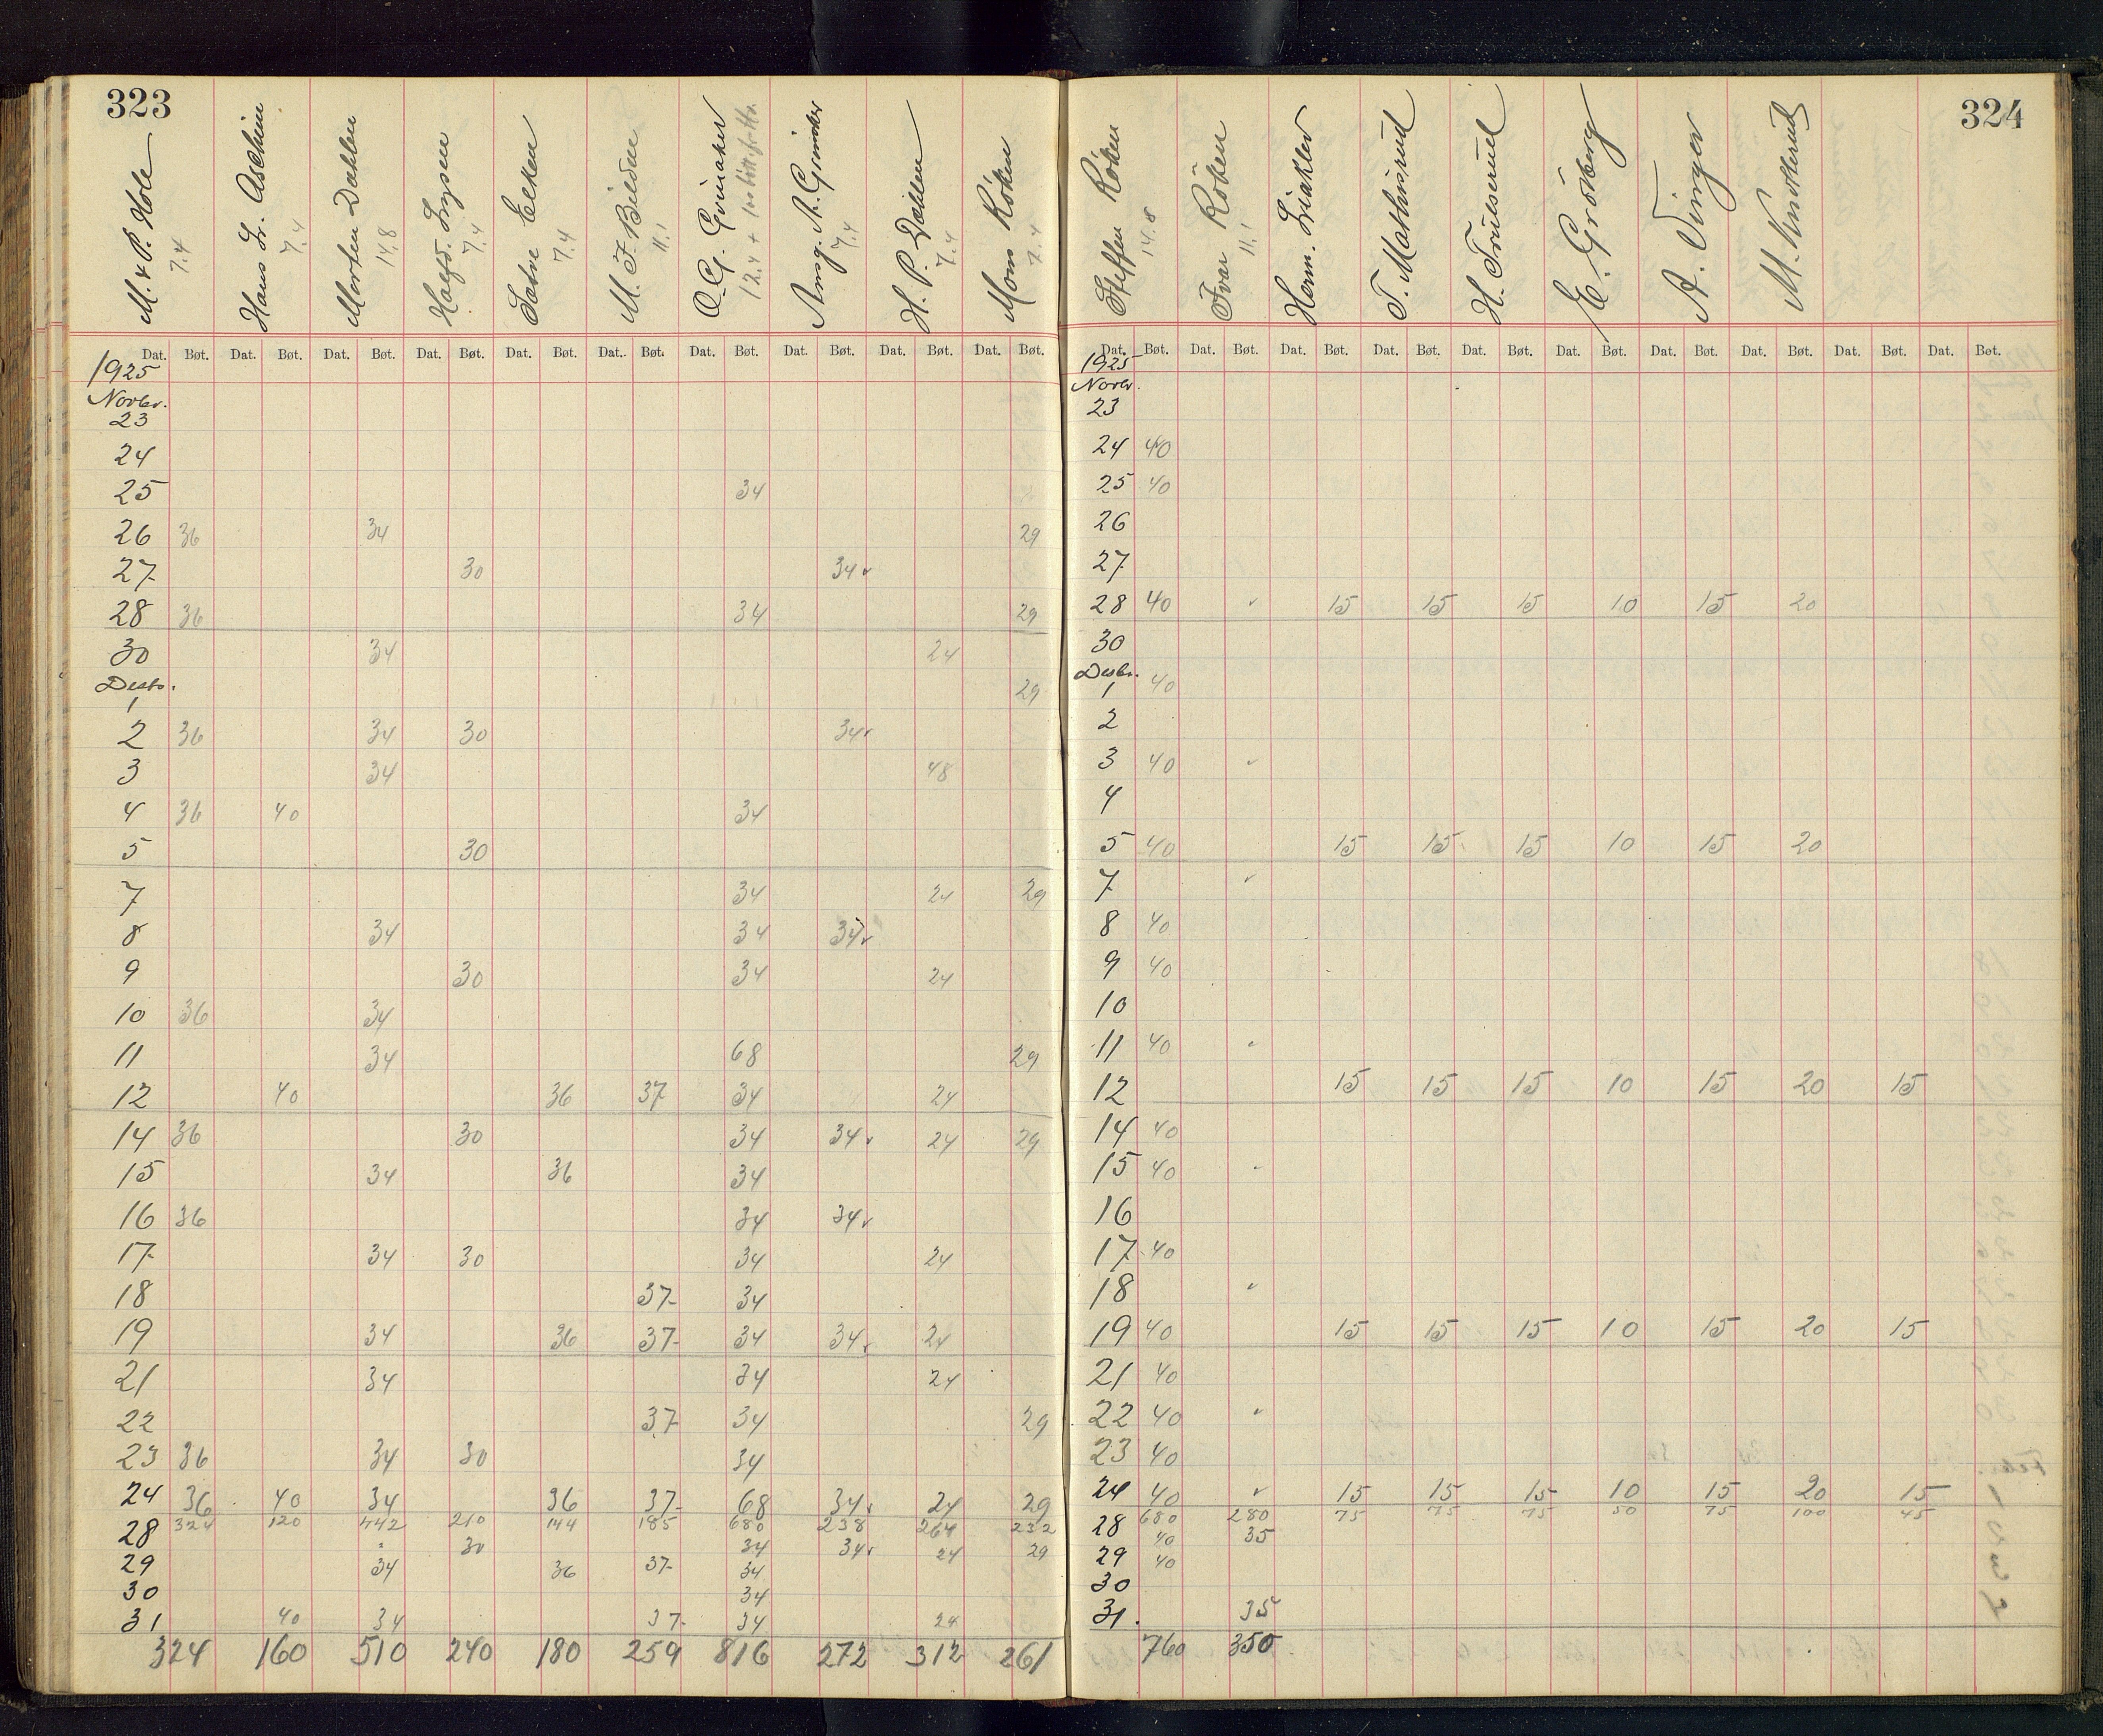 323
M. & P. Hole 7.4
Hans Hr. Aschim 7.4
Morten Dæhlen 14.8
Halfd. 7.4
Sætre Elken 7.4
M. F. Bilden 11.1
O. G. Grimaker 12.4 +
Amg. A. Grimaker 7.4
H. P. Dæhlen 7.4
Mons Røken 7.4
Dat. Bøt. Dat. Bøt. Dat. Bøt. Dat. Bøt. Dat. Bøt. Dat. Bøt. Dat. Bøt. Dat. Bøt. Dat. Bøt. Dat. Bøt.
1925
Novbr.
23
24
25 34
26 36 34 29
27 30 34 v
28 36 34 29
30 34 24
Desb.
1 29
2 36 34 30 34 v
3 34 48
4 36 40 34
5 30
7 34 24 29
8 34 34 34 v
9 30 34 24
10 36 34
11 34 68 29
12 40 36 37 34 24
14 36 30 34 34 v 24 29
15 34 36 34
16 36 34 34 v
17 34 30 34 24
18 37 34
19 34 36 37 34 34 v 24
21 34 34 24
22 37 34 29
23 36 34 30 34
24 36 40 34 36 37 68 34 v 24 29
324 120 442 210 144 185 680 238 264 232
28 30 34 34 v 24 29
29 34 36 37 34
30 34
31 40 34 37 34 24
324 160 510 240 180 259 816 272 312 261
324
Steffen Røken 14.8
Ivar Røken 11.1
Herm. Liaklev
T. Mathisrud
H. Trulserud
E. Grøsberg
A. Vinger
M.
Dat. Bøt. Dat. Bøt. Dat. Bøt. Dat. Bøt. Dat. Bøt. Dat. Bøt. Dat. Bøt. Dat. Bøt. Dat. Bøt. Dat. Bøt.
1925
Novbr.
23
24 40
25 40
26
27
28 40 v 15 15 15 10 15 20
30
Desbr.
1 40
2
3 40 v
4
5 40 15 15 15 10 15 20
7 v
8 40
9 40
10
11 40 v
12 15 15 15 10 15 20 15
14 40
15 40 v
16
17 40
18 v
19 40 15 15 15 10 15 20 15
21 40
22 40 v
23 40
24 40 v 15 15 15 10 15 20 15
680 280 75 75 75 50 75 100 45
28 40 35
29 40
30
31. 35
760 350